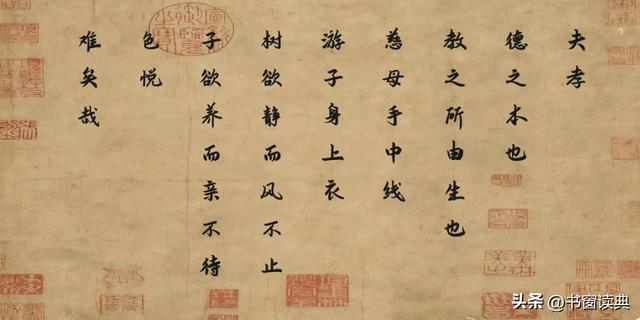 夫孝
德之本也
教之所由生也
慈母手中线
游子身上衣
树欲静而风不止
子欲养而亲不待
色悦
难矣哉
头条 @书窗读典